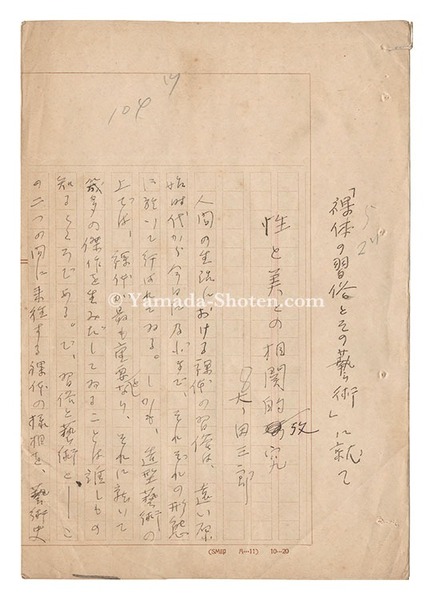 「裸体の習俗とその藝術」に就て
性と美との相関的攷究
太田三郎
人間の生活における裸体の習俗は、遠い原
始時代から今日に及ぶまで、それぞれの形態
に於いて行はれてゐる。しかも、造型藝術の
上では、裸体が最も重要となり、それに就いて
幾多の傑作を生みだしてゐることは誰しもの
知るところである。で、習俗と藝術と――こ
の二つの間に来往する裸体の様相を、藝術史
104
© Yamada-Shoten.com
(SM印 A-11) 10-20